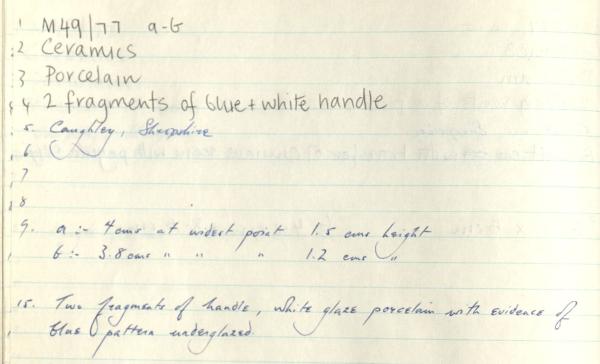 1 M49/77 a-b
2 Ceramics
3 Porcelain
4 2 fragments of blue + white handle
5. Caughley, Shropshire
6
7
8
9. a :- 4 cms at widest point 1.5 cms height
b :- 3.8 cms " " " 1.2 cms "
15. Two fragments of handle, white glaze porcelain with evidence of
blue pattern underglazed.